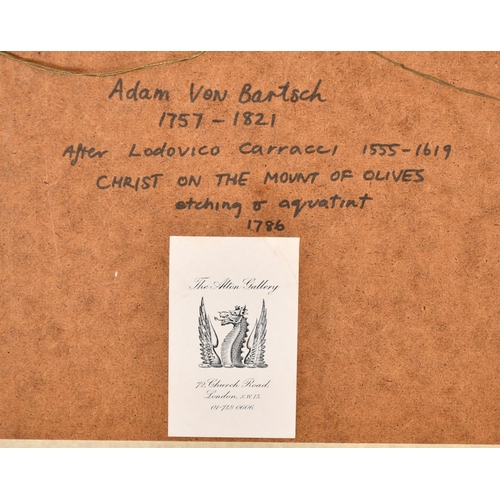 Adam Von Bartsch
1757-1821
After Lodovico Carracci 1555-1619
CHRIST ON THE MOUNT OF OLIVES
etching & aquatint
1786
The Alton Gallery
72, Church Road,
London, S.W.13.
01-748 0606